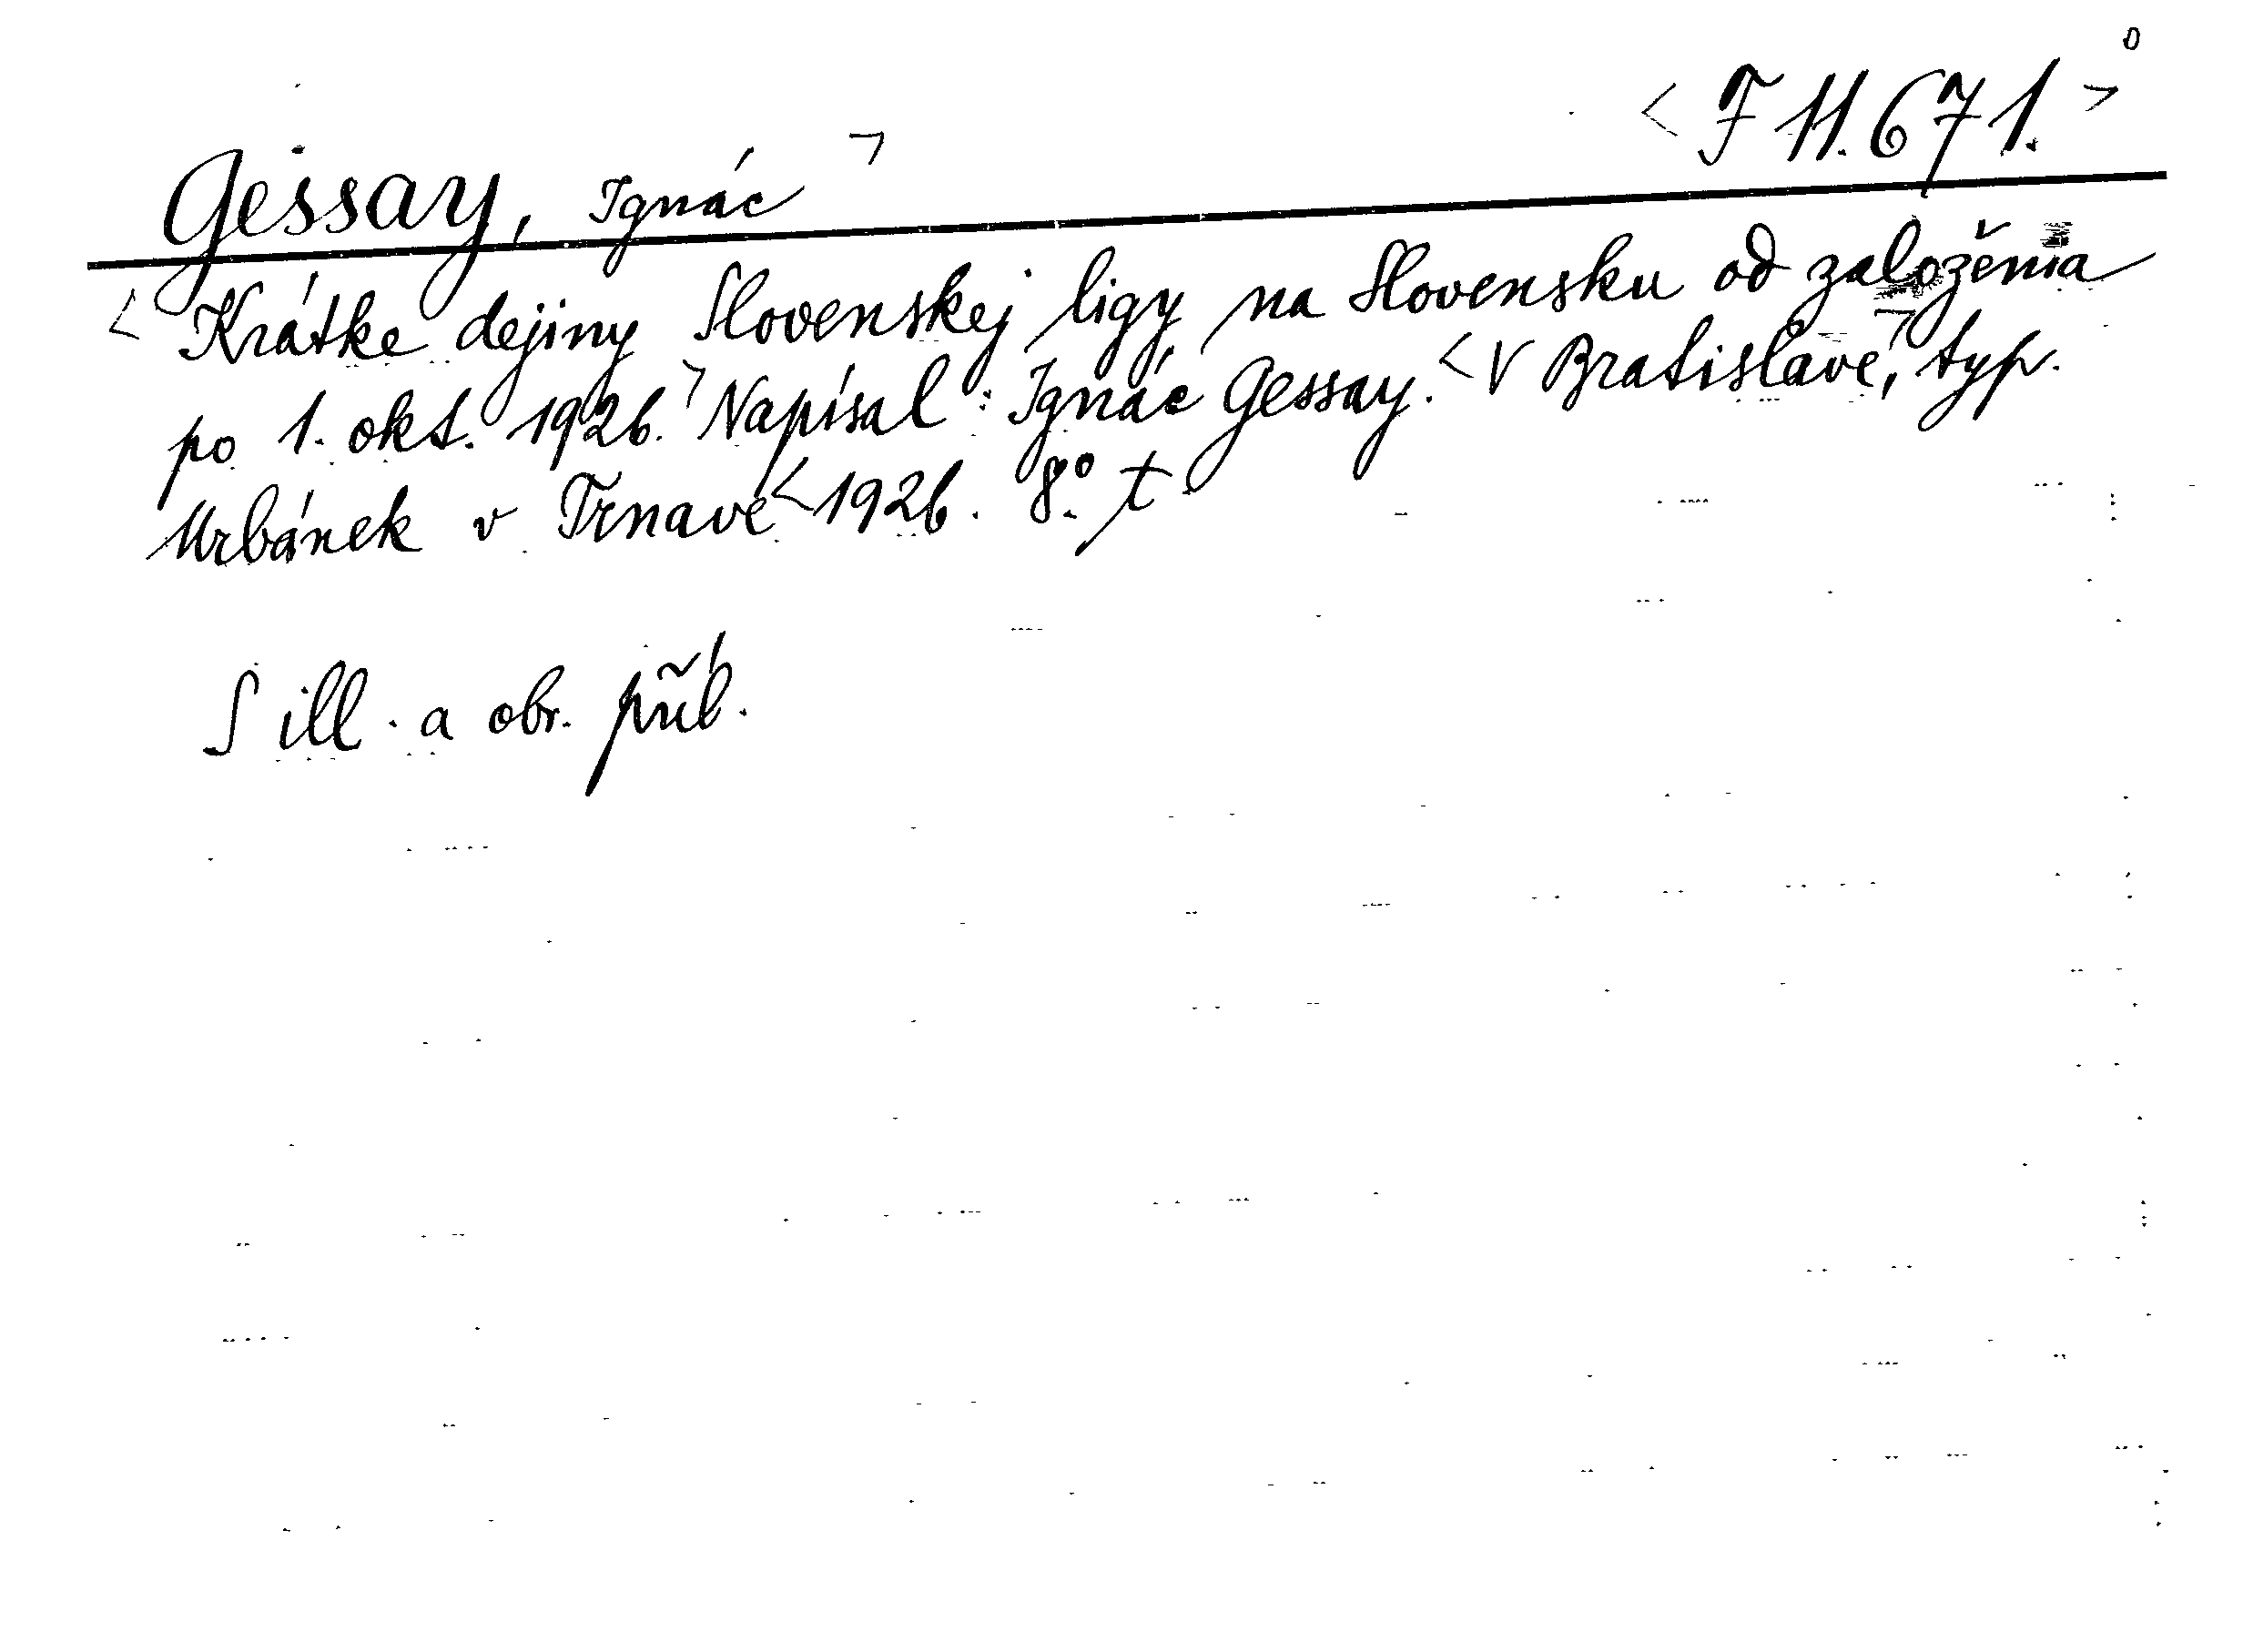 o
< F 11.671. >
Gessay, Ignác ¬
< Krátke dejiny Slovenskej ligy na Slovensku od založenia
po 1. okt. 1926.¬ Napísal: Ignác Gessay. < V Bratislave,¬ typ.
Urbánek v Trnave < 1926. 8°. t.
S ill. a obr. příl.